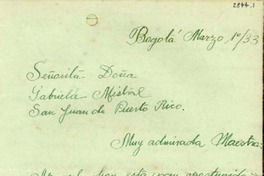 2844.1
Bogotá Marzo, 1º/33
Señorita Doña
Gabriela Mistral
San Juan de Puerto Rico.
Muy admirada Maestra: